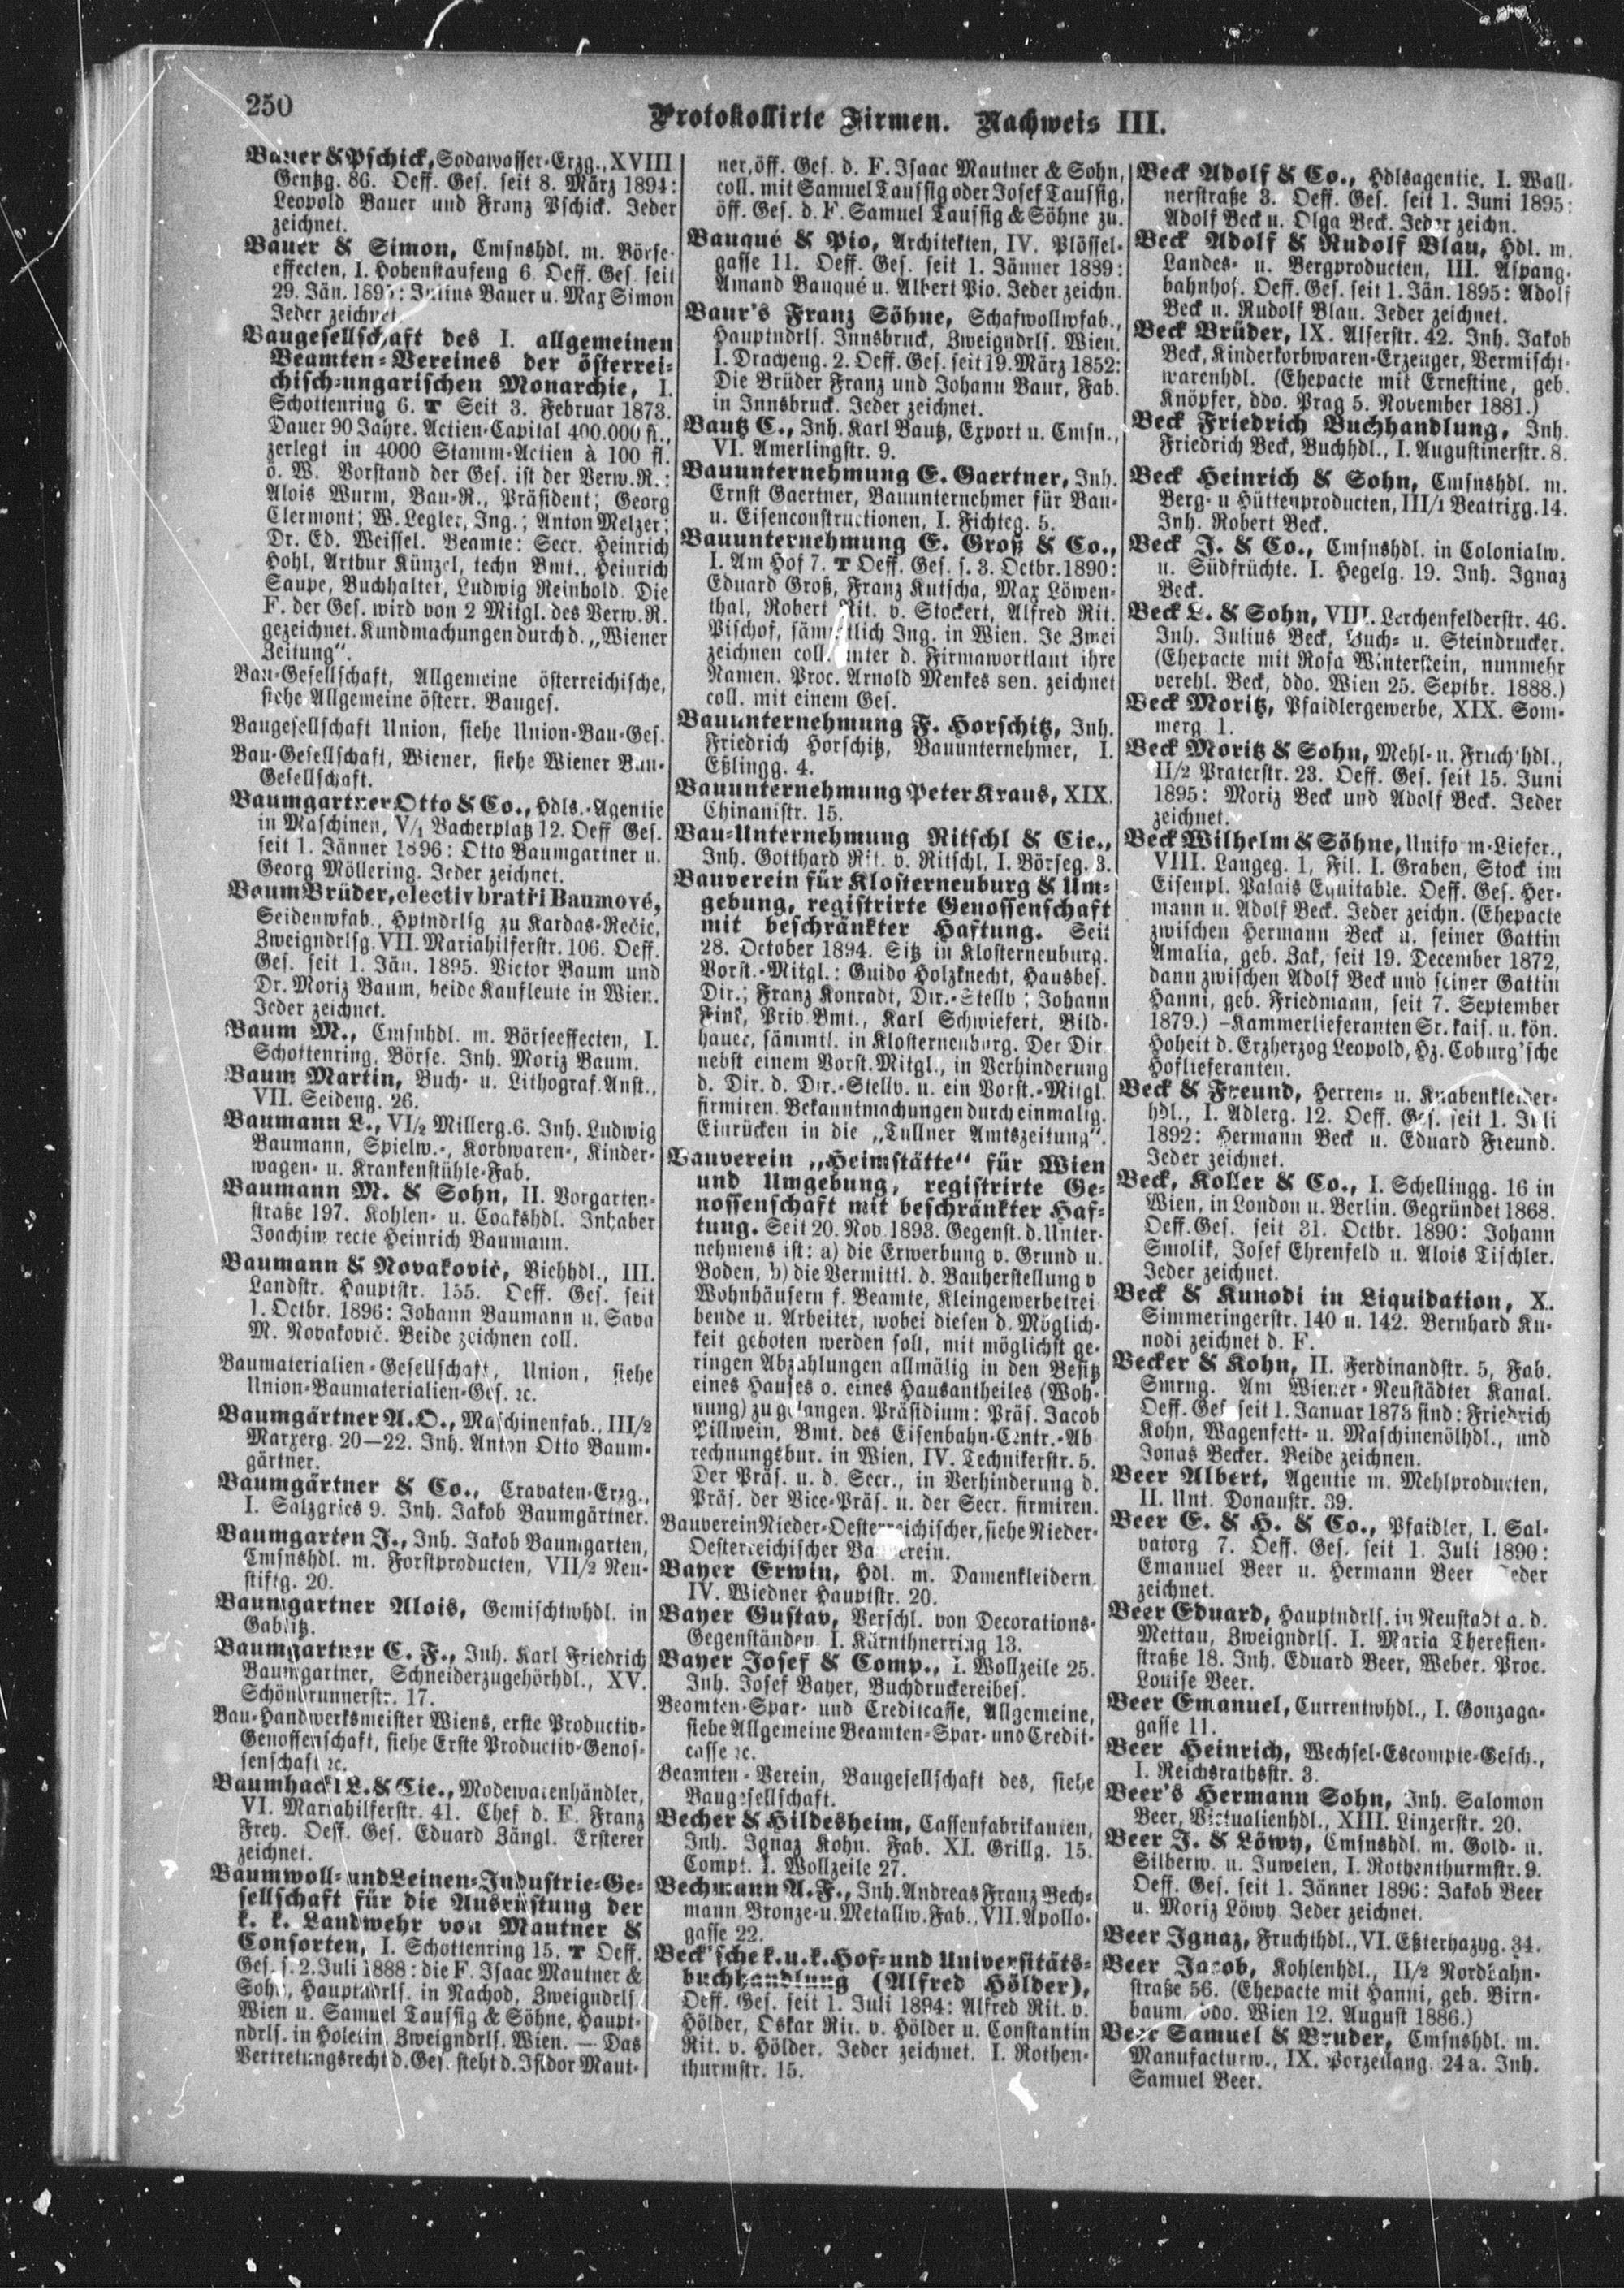 250
Protokollirte Firmen. Nachweis III.
Bauer & Pschick, Sodawasser-Erzg., XVIII
Gentzg. 86. Oeff. Ges. seit 8. März 1894:
Leopold Bauer und Franz Pschick. Jeder
zeichnet.
Bauer & Simon, Cmsnshdl. m. Börse-
effecten, I. Hohenstaufeng 6. Oeff. Ges. seit
29. Jän. 189 : Julius Bauer u. Max Simon
Jeder zeichnet
Baugesellschaft des I. allgemeinen
Beamten-Vereines der österrei-
chisch-ungarischen Monarchie, I.
Schottenring 6. T Seit 3. Februar 1873.
Dauer 90 Jahre. Actien-Capital 400.000 fl.,
zerlegt in 4000 Stamm-Actien à 100 fl.
ö. W. Vorstand der Ges. ist der Verw.R.:
Alois Wurm, Bau-R., Präsident; Georg
Clermont; W. Legler, Ing.; Anton Melzer;
Dr. Ed. Weissel. Beamte: Secr. Heinrich
Hohl, Arthur Künzel, techn Bmt., Heinrich
Saupe, Buchhalter, Ludwig Reinhold. Die
F. der Ges. wird von 2 Mitgl. des Verw.R.
gezeichnet. Kundmachungen durch d. „Wiener
Zeitung“.
Bau-Gesellschaft, Allgemeine österreichische,
siehe Allgemeine österr. Bauges.
Baugesellschaft Union, siehe Union-Bau-Ges.
Bau-Gesellschaft, Wiener, siehe Wiener Bau-
Gesellschaft.
Baumgartner Otto & Co., Hdls.-Agentie
in Maschinen, V/1 Bacherplatz 12. Oeff Ges.
seit 1. Jänner 1896: Otto Baumgartner u.
Georg Möllering. Jeder zeichnet.
Baum Brüder, electiv bratři Baumové,
Seidenwfab., Hptndrlsg zu Kardas-Rečic,
Zweigndrlsg. VII. Mariahilferstr. 106. Oeff.
Ges. seit 1. Jän. 1895. Victor Baum und
Dr. Moriz Baum, beide Kaufleute in Wien.
Jeder zeichnet.
Baum M., Cmsnhdl. m. Börseeffecten, I.
Schottenring, Börse. Inh. Moriz Baum.
Baum Martin, Buch- u. Lithograf. Anst.,
VII. Seideng. 26.
Baumann L., VI/2 Millerg. 6. Inh. Ludwig
Baumann, Spielw.-, Korbwaren-, Kinder-
wagen- u. Krankenstühle-Fab.
Baumann M. & Sohn, II. Vorgarten-
straße 197. Kohlen- u. Coakshdl. Inhaber
Joachim recte Heinrich Baumann.
Baumann & Novaković, Viehhdl., III.
Landstr. Hauptstr. 155. Oeff. Ges. seit
1. Octbr. 1896: Johann Baumann u. Sava
M. Novaković. Beide zeichnen coll.
Baumaterialien-Gesellschaft, Union, siehe
Union-Baumaterialien-Ges. ꝛc.
Baumgärtner A. O., Maschinenfab., III/2
Marxerg. 20—22. Inh. Anton Otto Baum-
gärtner.
Baumgärtner & Co., Cravaten-Erzg.,
I. Salzgries 9. Inh. Jakob Baumgärtner.
Baumgarten J., Inh. Jakob Baumgarten,
Cmsnshdl. m. Forstproducten, VII/2 Neu-
stiftg. 20.
Baumgartner Alois, Gemischtwhdl. in
Gablitz.
Baumgartner C. F., Inh. Karl Friedrich
Baumgartner, Schneiderzugehörhdl., XV.
Schönbrunnerstr. 17.
Bau-Handwerksmeister Wiens, erste Productiv-
Genossenschaft, siehe Erste Productiv-Genos-
senschaft ꝛc.
Baumhackl L. & Cie., Modewarenhändler,
VI. Mariahilferstr. 41. Chef d. F. Franz
Frey. Oeff. Ges. Eduard Zängl. Ersterer
zeichnet.
Baumwoll- und Leinen-Industrie-Ge-
sellschaft für die Ausrüstung der
k. k. Landwehr von Mautner &
Consorten, I. Schottenring 15. T Oeff.
Ges. s. 2. Juli 1888: die F. Isaac Mautner &
Sohn, Hauptndrls. in Nachod, Zweigndrls
Wien u. Samuel Taussig & Söhne, Haupt-
ndrls. in Holetin, Zweigndrls. Wien. — Das
Vertretungsrecht d. Ges. steht d. Isidor Maut-
ner, öff. Ges. d. F. Isaac Mautner & Sohn,
coll. mit Samuel Taussig oder Josef Taussig,
öff. Ges. d. F. Samuel Taussig & Söhne zu.
Bauqué & Pio, Architekten, IV. Plössel-
gasse 11. Oeff. Ges. seit 1. Jänner 1889:
Amand Bauqué u. Albert Pio. Jeder zeichn.
Baur's Franz Söhne, Schafwollwfab.,
Hauptndrls. Innsbruck, Zweigndrls. Wien.
I. Dracheng. 2. Oeff. Ges. seit 19. März 1852:
Die Brüder Franz und Johann Baur, Fab.
in Innsbruck. Jeder zeichnet.
Bautz C., Inh. Karl Bautz, Export u. Cmsn.,
VI. Amerlingstr. 9.
Bauunternehmung E. Gaertner, Inh.
Ernst Gaertner, Bauunternehmer für Bau-
u. Eisenconstructionen, I. Fichteg. 5.
Bauunternehmung E. Groß & Co.,
I. Am Hof 7. T Oeff. Ges. s. 3. Octbr. 1890:
Eduard Groß, Franz Kutscha, Max Löwen-
thal, Robert Rit. v. Stockert, Alfred Rit.
Pischof, sämmtlich Ing. in Wien. Je Zwei
zeichnen coll. unter d. Firmawortlaut ihre
Namen. Proc. Arnold Menkes sen. zeichnet
coll. mit einem Ges.
Bauunternehmung F. Horschitz, Inh.
Friedrich Horschitz, Bauunternehmer, I.
Eßlingg. 4.
Bauunternehmung Peter Kraus, XIX.
Chinanistr. 15.
Bau-Unternehmung Ritschl & Cie.,
Inh. Gotthard Rit. v. Ritschl, I. Börseg. 3.
Bauverein für Klosterneuburg & Um-
gebung, registrirte Genossenschaft
mit beschränkter Haftung. Seit
28. October 1894. Sitz in Klosterneuburg.
Vorst.-Mitgl.: Guido Holzknecht, Hausbes.
Dir.; Franz Konradt, Dir.-Stellv; Johann
Fink, Priv. Bmt., Karl Schwiefert, Bild-
hauer, sämmtl. in Klosterneuburg. Der Dir
nebst einem Vorst. Mitgl., in Verhinderung
d. Dir. d. Dir.-Stellv. u. ein Vorst.-Mitgl.
firmiren. Bekanntmachungen durch einmalig.
Einrücken in die „Tullner Amtszeitung“.
Bauverein „Heimstätte“ für Wien
und Umgebung, registrirte Ge-
nossenschaft mit beschränkter Haf-
tung. Seit 20. Nov. 1893. Gegenst. d. Unter-
nehmens ist: a) die Erwerbung v. Grund u.
Boden, b) die Vermittl. d. Bauherstellung v
Wohnhäusern f. Beamte, Kleingewerbetrei
bende u. Arbeiter, wobei diesen d. Möglich-
keit geboten werden soll, mit möglichst ge-
ringen Abzahlungen allmälig in den Besitz
eines Hauses o. eines Hausantheiles (Woh-
nung) zu gelangen. Präsidium: Präs. Jacob
Pillwein, Bmt. des Eisenbahn-Centr.-Ab
rechnungsbur. in Wien, IV. Technikerstr. 5.
Der Präs. u. d. Secr., in Verhinderung d.
Präs. der Vice-Präs. u. der Secr. firmiren.
Bauverein Nieder-Oesterreichischer, siehe Nieder-
Oesterreichischer Bauverein.
Bayer Erwin, Hdl. m. Damenkleidern.
IV. Wiedner Hauptstr. 20.
Bayer Gustav, Verschl. von Decorations-
Gegenständen. I. Kärnthnerring 13.
Bayer Josef & Comp., I. Wollzeile 25.
Inh. Josef Bayer, Buchdruckereibes.
Beamten-Spar- und Creditcasse, Allgemeine,
siehe Allgemeine Beamten-Spar- und Credit-
casse ꝛc.
Beamten-Verein, Baugesellschaft des, siehe
Baugesellschaft.
Becher & Hildesheim, Cassenfabrikanten,
Inh. Ignaz Kohn. Fab. XI. Grillg. 15.
Compt. I. Wollzeile 27.
Bechmann A. F., Inh. Andreas Franz Bech-
mann, Bronze- u. Metallw. Fab., VII. Apollo-
gasse 22.
Beck'sche k. u. k. Hof- und Universitäts-
buchhandlung (Alfred Hölder),
Oeff. Ges. seit 1. Juli 1894: Alfred Rit. v.
Hölder, Oskar Rit. v. Hölder u. Constantin
Rit. v. Hölder. Jeder zeichnet. I. Rothen-
thurmstr. 15.
Beck Adolf & Co., Hdlsagentie, I. Wall-
nerstraße 3. Oeff. Ges. seit 1. Juni 1895:
Adolf Beck u. Olga Beck. Jeder zeichn.
Beck Adolf & Rudolf Blau, Hdl. m.
Landes- u. Bergproducten, III. Aspang-
bahnhof. Oeff. Ges. seit 1. Jän. 1895: Adolf
Beck u. Rudolf Blau. Jeder zeichnet.
Beck Brüder, IX. Alserstr. 42. Inh. Jakob
Beck, Kinderkorbwaren-Erzeuger, Vermischt-
warenhdl. (Ehepacte mit Ernestine, geb.
Knöpfer, ddo. Prag 5. November 1881.)
Beck Friedrich Buchhandlung, Inh.
Friedrich Beck, Buchhdl., I. Augustinerstr. 8.
Beck Heinrich & Sohn, Cmsnshdl. m.
Berg- u Hüttenproducten, III/1 Beatrixg. 14.
Inh. Robert Beck.
Beck J. & Co., Cmsnshdl. in Colonialw.
u. Südfrüchte. I. Hegelg. 19. Inh. Ignaz
Beck.
Beck L. & Sohn, VIII. Lerchenfelderstr. 46.
Inh. Julius Beck, Buch- u. Steindrucker.
(Ehepacte mit Rosa Winterstein, nunmehr
verehl. Beck, ddo. Wien 25. Septbr. 1888.)
Beck Moritz, Pfaidlergewerbe, XIX. Som-
merg. 1.
Beck Moritz & Sohn, Mehl- u. Fruchthdl.,
II/2 Praterstr. 23. Oeff. Ges. seit 15. Juni
1895: Moriz Beck und Adolf Beck. Jeder
zeichnet.
Beck Wilhelm & Söhne, Uniform-Liefer.,
VIII. Langeg. 1, Fil. I. Graben, Stock im
Eisenpl. Palais Equitable. Oeff. Ges. Her-
mann u. Adolf Beck. Jeder zeichn. (Ehepacte
zwischen Hermann Beck u. seiner Gattin
Amalia, geb. Zak, seit 19. December 1872,
dann zwischen Adolf Beck und seiner Gattin
Hanni, geb. Friedmann, seit 7. September
1879.) —Kammerlieferanten Sr. kais. u. kön.
Hoheit d. Erzherzog Leopold, Hz. Coburg'sche
Hoflieferanten.
Beck & Freund, Herren- u. Knabenkleider-
hdl., I. Adlerg. 12. Oeff. Ges. seit 1. Juli
1892: Hermann Beck u. Eduard Freund.
Jeder zeichnet.
Beck, Koller & Co., I. Schellingg. 16 in
Wien, in London u. Berlin. Gegründet 1868.
Oeff. Ges. seit 31. Octbr. 1890: Johann
Smolik, Josef Ehrenfeld u. Alois Tischler.
Jeder zeichnet.
Beck & Kunodi in Liquidation, X.
Simmeringerstr. 140 u. 142. Bernhard Ku-
nodi zeichnet d. F.
Becker & Kohn, II. Ferdinandstr. 5, Fab.
Smrng. Am Wiener-Neustädter Kanal.
Oeff. Ges seit 1. Januar 1873 sind: Friedrich
Kohn, Wagenfett- u. Maschinenölhdl., und
Jonas Becker. Beide zeichnen.
Beer Albert, Agentie m. Mehlproducten,
II. Unt. Donaustr. 39.
Beer E. & H. & Co., Pfaidler, I. Sal-
vatorg 7. Oeff. Ges. seit 1. Juli 1890:
Emanuel Beer u. Hermann Beer Jeder
zeichnet.
Beer Eduard, Hauptndrls. in Neustadt a. d.
Mettau, Zweigndrls. I. Maria Theresien-
straße 18. Inh. Eduard Beer, Weber. Proc.
Louise Beer.
Beer Emanuel, Currentwhdl., I. Gonzaga-
gasse 11.
Beer Heinrich, Wechsel-Escompte-Gesch.,
I. Reichsrathsstr. 3.
Beer's Hermann Sohn, Inh. Salomon
Beer, Victualienhdl., XIII. Linzerstr. 20.
Beer J. & Löwy, Cmsnshdl. m. Gold- u.
Silberw. u. Juwelen, I. Rothenthurmstr. 9.
Oeff. Ges. seit 1. Jänner 1896: Jakob Beer
u. Moriz Löwy Jeder zeichnet.
Beer Ignaz, Fruchthdl., VI. Eßterhazyg. 34.
Beer Jacob, Kohlenhdl., II/2 Nordbahn-
straße 56. (Ehepacte mit Hanni, geb. Birn-
baum, ddo. Wien 12. August 1886.)
Beer Samuel & Bruder, Cmsnshdl. m.
Manufacturw., IX. Porzellang. 24a. Inh.
Samuel Beer.